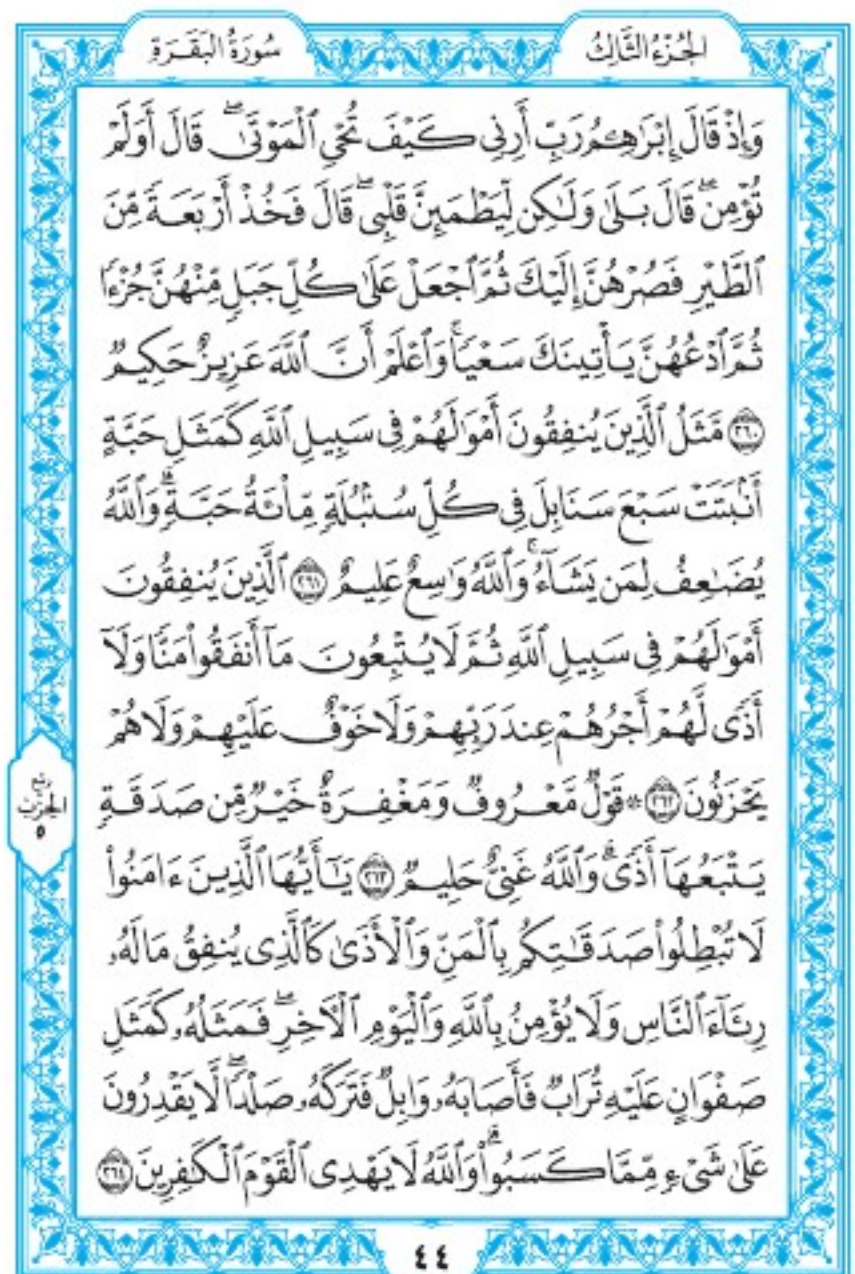 الجُزْءُ الثَّالِثُ
سُورَةُ البَقَرَةِ
وَإِذْ قَالَ إِبْرَٰهِـۧمُ رَبِّ أَرِنِى كَيْفَ تُحْىِ ٱلْمَوْتَىٰ ۖ قَالَ أَوَلَمْ
تُؤْمِن ۖ قَالَ بَلَىٰ وَلَـٰكِن لِّيَطْمَئِنَّ قَلْبِى ۖ قَالَ فَخُذْ أَرْبَعَةً مِّنَ
ٱلطَّيْرِ فَصُرْهُنَّ إِلَيْكَ ثُمَّ ٱجْعَلْ عَلَىٰ كُلِّ جَبَلٍ مِّنْهُنَّ جُزْءًا
ثُمَّ ٱدْعُهُنَّ يَأْتِينَكَ سَعْيًا ۚ وَٱعْلَمْ أَنَّ ٱللَّهَ عَزِيزٌ حَكِيمٌ
۝٢٦٠ مَّثَلُ ٱلَّذِينَ يُنفِقُونَ أَمْوَٰلَهُمْ فِى سَبِيلِ ٱللَّهِ كَمَثَلِ حَبَّةٍ
أَنۢبَتَتْ سَبْعَ سَنَابِلَ فِى كُلِّ سُنۢبُلَةٍ مِّا۟ئَةُ حَبَّةٍ ۗ وَٱللَّهُ
يُضَـٰعِفُ لِمَن يَشَآءُ ۚ وَٱللَّهُ وَٰسِعٌ عَلِيمٌ ۝٢٦١ ٱلَّذِينَ يُنفِقُونَ
أَمْوَٰلَهُمْ فِى سَبِيلِ ٱللَّهِ ثُمَّ لَا يُتْبِعُونَ مَآ أَنفَقُوا۟ مَنًّا وَلَآ
أَذًى لَّهُمْ أَجْرُهُمْ عِندَ رَبِّهِمْ وَلَا خَوْفٌ عَلَيْهِمْ وَلَا هُمْ
يَحْزَنُونَ ۝٢٦٢ ۞ قَوْلٌ مَّعْرُوفٌ وَمَغْفِرَةٌ خَيْرٌ مِّن صَدَقَةٍ
ربع
الحزب
٥
يَتْبَعُهَآ أَذًى ۗ وَٱللَّهُ غَنِىٌّ حَلِيمٌ ۝٢٦٣ يَـٰٓأَيُّهَا ٱلَّذِينَ ءَامَنُوا۟
لَا تُبْطِلُوا۟ صَدَقَـٰتِكُم بِٱلْمَنِّ وَٱلْأَذَىٰ كَٱلَّذِى يُنفِقُ مَالَهُۥ
رِئَآءَ ٱلنَّاسِ وَلَا يُؤْمِنُ بِٱللَّهِ وَٱلْيَوْمِ ٱلْـَٔاخِرِ ۖ فَمَثَلُهُۥ كَمَثَلِ
صَفْوَانٍ عَلَيْهِ تُرَابٌ فَأَصَابَهُۥ وَابِلٌ فَتَرَكَهُۥ صَلْدًا ۖ لَّا يَقْدِرُونَ
عَلَىٰ شَىْءٍ مِّمَّا كَسَبُوا۟ ۗ وَٱللَّهُ لَا يَهْدِى ٱلْقَوْمَ ٱلْكَـٰفِرِينَ ۝٢٦٤
٤٤